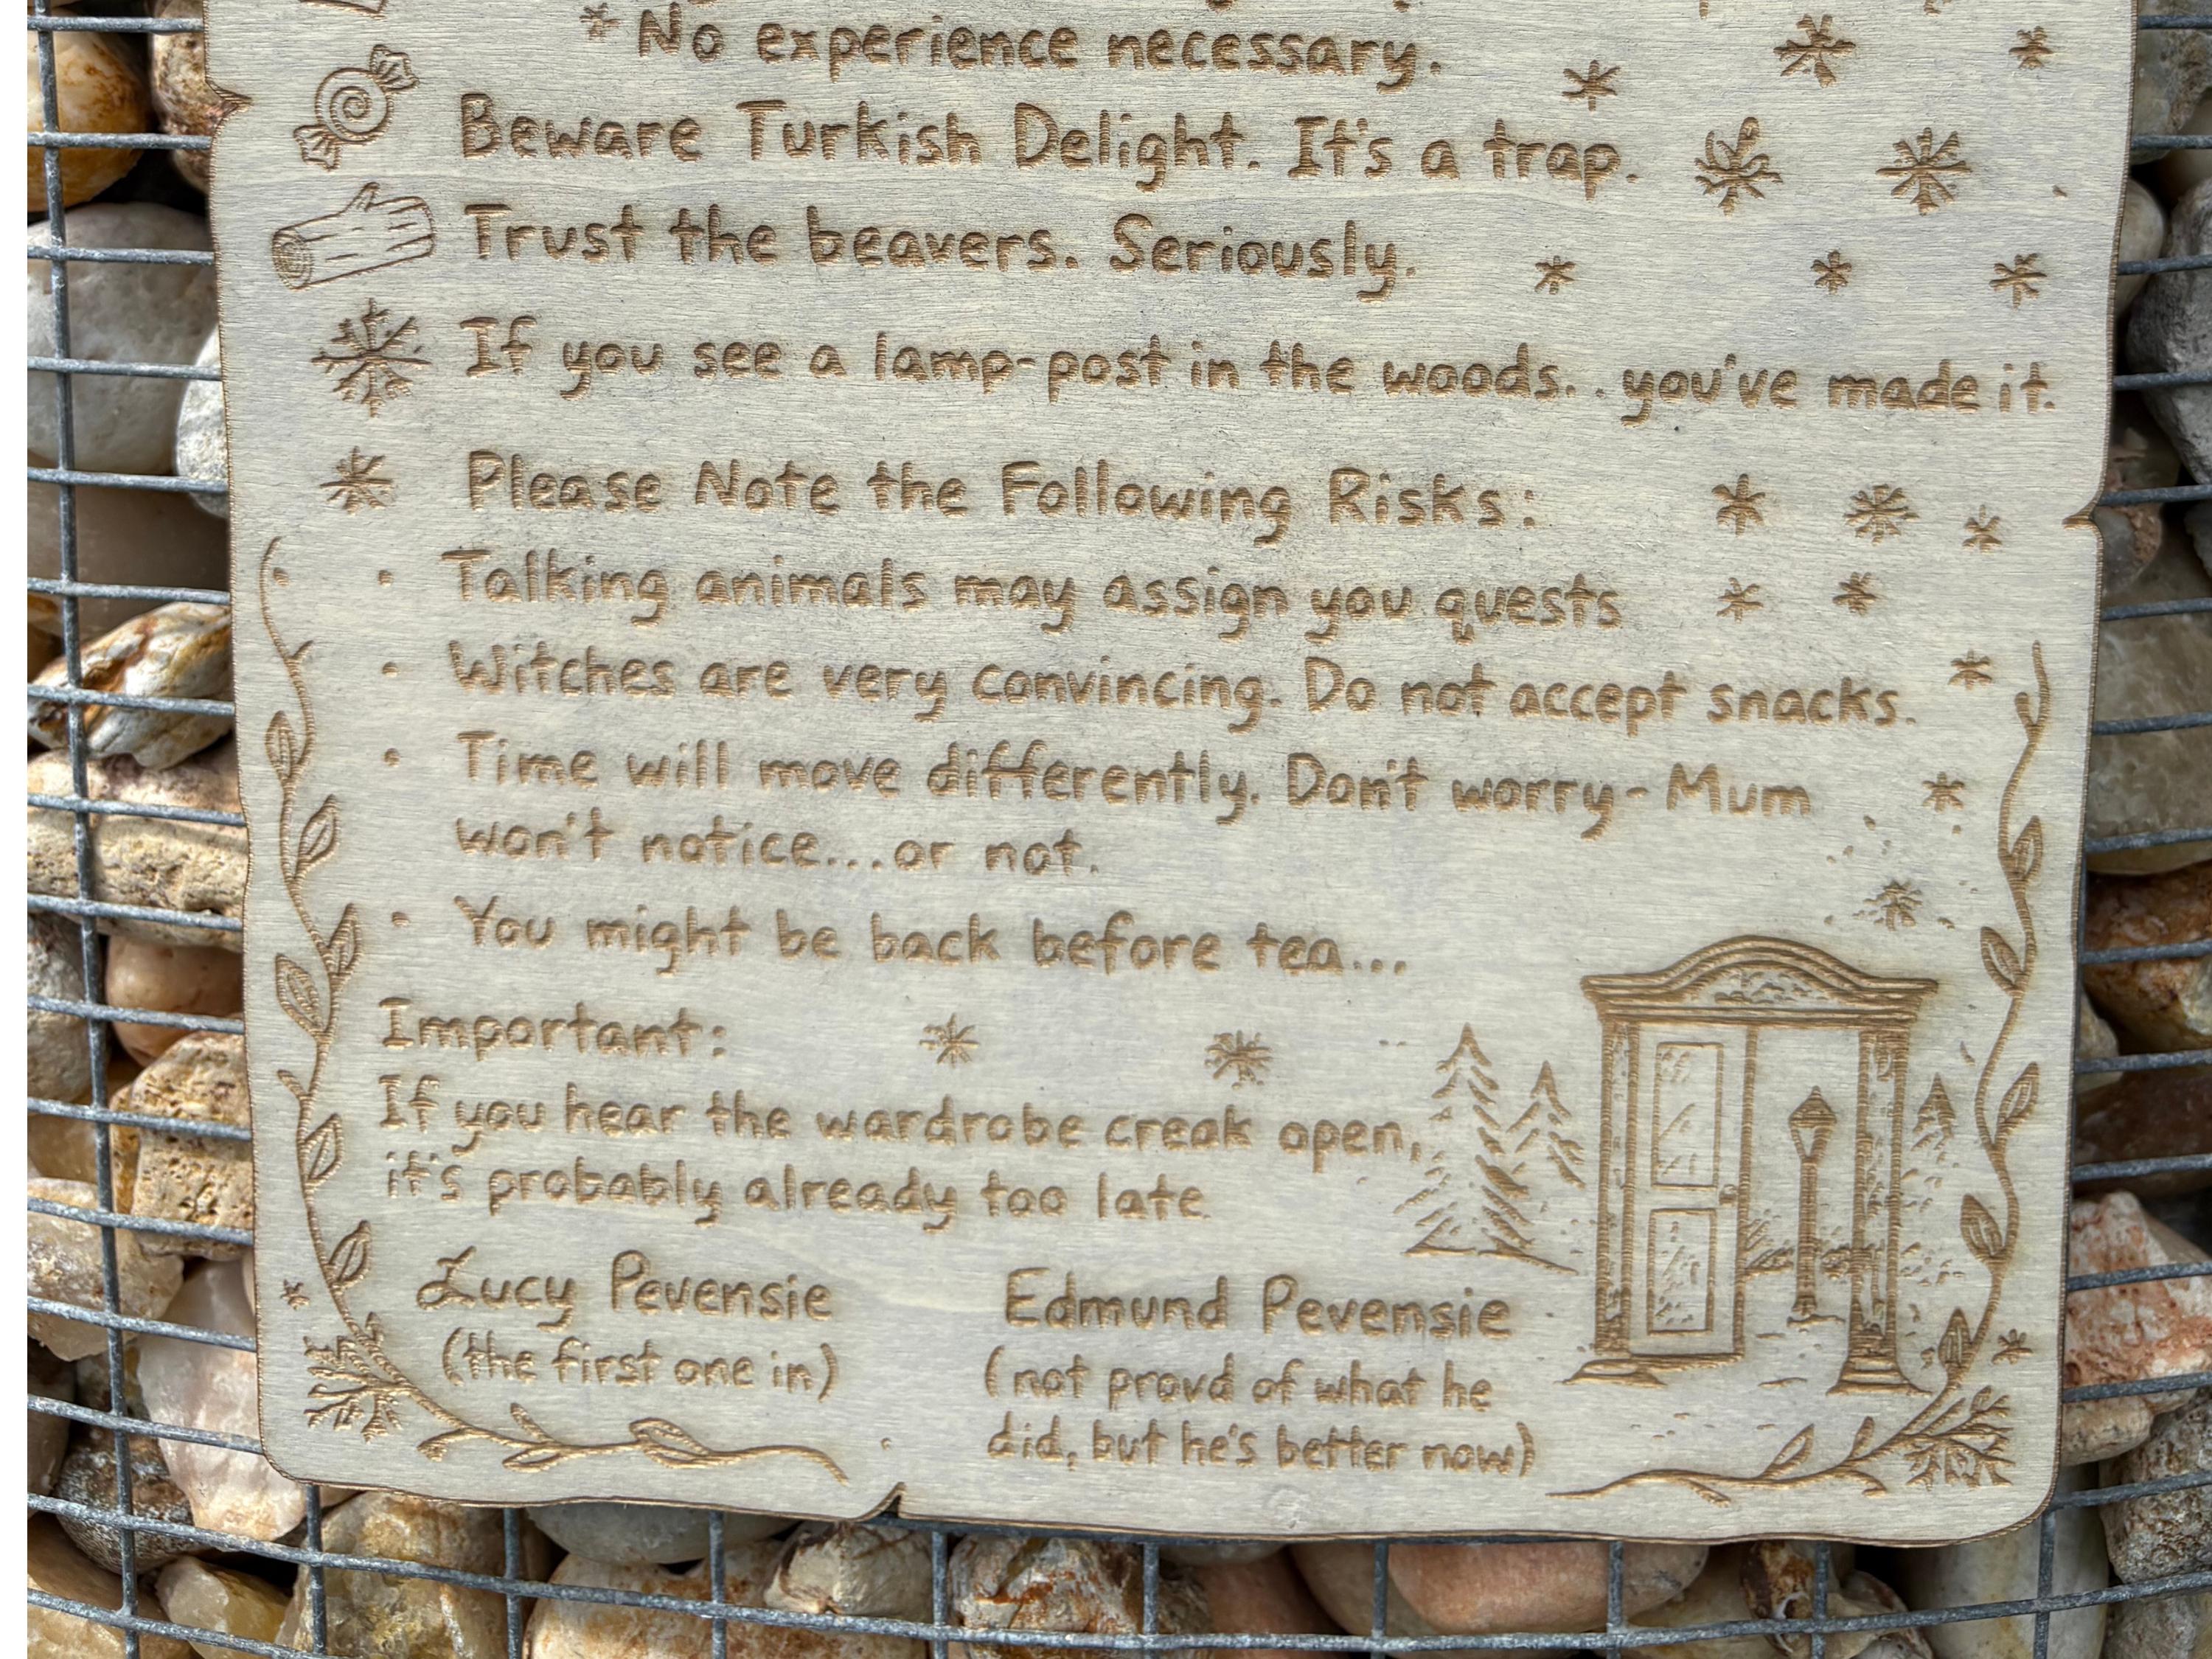 * No experience necessary.
Beware Turkish Delight. It's a trap.
Trust the beavers. Seriously.
If you see a lamp-post in the woods. . you've made it.
Please Note the Following Risks:
• Talking animals may assign you quests
• Witches are very convincing. Do not accept snacks.
• Time will move differently. Don't worry - Mum
won't notice...or not.
• You might be back before tea...
Important:
If you hear the wardrobe creak open,
it's probably already too late
Lucy Pevensie
(the first one in)
Edmund Pevensie
(not proud of what he
did, but he's better now)